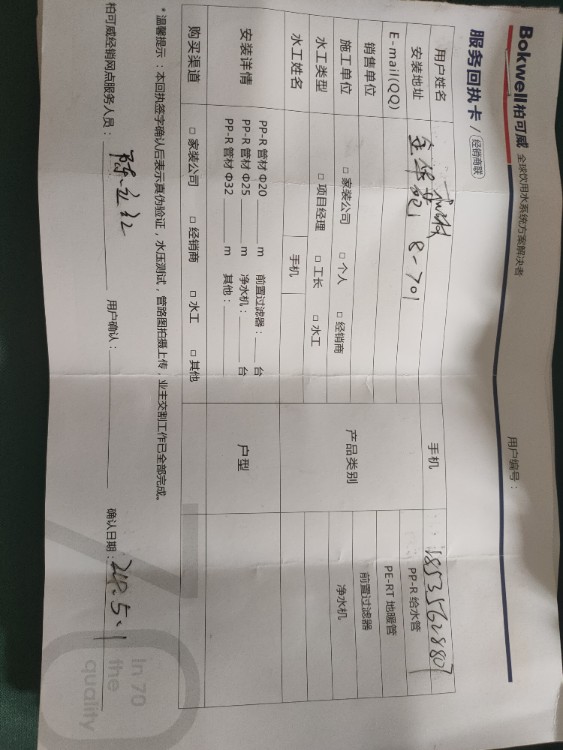 Bokwell柏可威 全球饮用水系统方案解决者
用户编号：
服务回执卡 / 经销商联
用户姓名 手机 18535628807
安装地址 8-701
E-mail(QQ)
销售单位
施工单位 □ 家装公司 □ 个人 □ 经销商
水工类型 □ 项目经理 □ 工长 □ 水工
水工姓名 手机
产品类别
PP-R 给水管
PE-RT 地暖管
前置过滤器
净水机
安装详情
PP-R 管材 Φ20 m 前置过滤器：台
PP-R 管材 Φ25 m 净水机：台
PP-R 管材 Φ32 m 其他：
户型
购买渠道 □ 家装公司 □ 经销商 □ 水工 □ 其他
*温馨提示：本回执签字确认后表示真伪验证，水压测试，管路图拍摄上传，业主交割工作已全部完成。
柏可威经销网点服务人员： 用户确认： 确认日期：20.5.1
In 70
the
quality